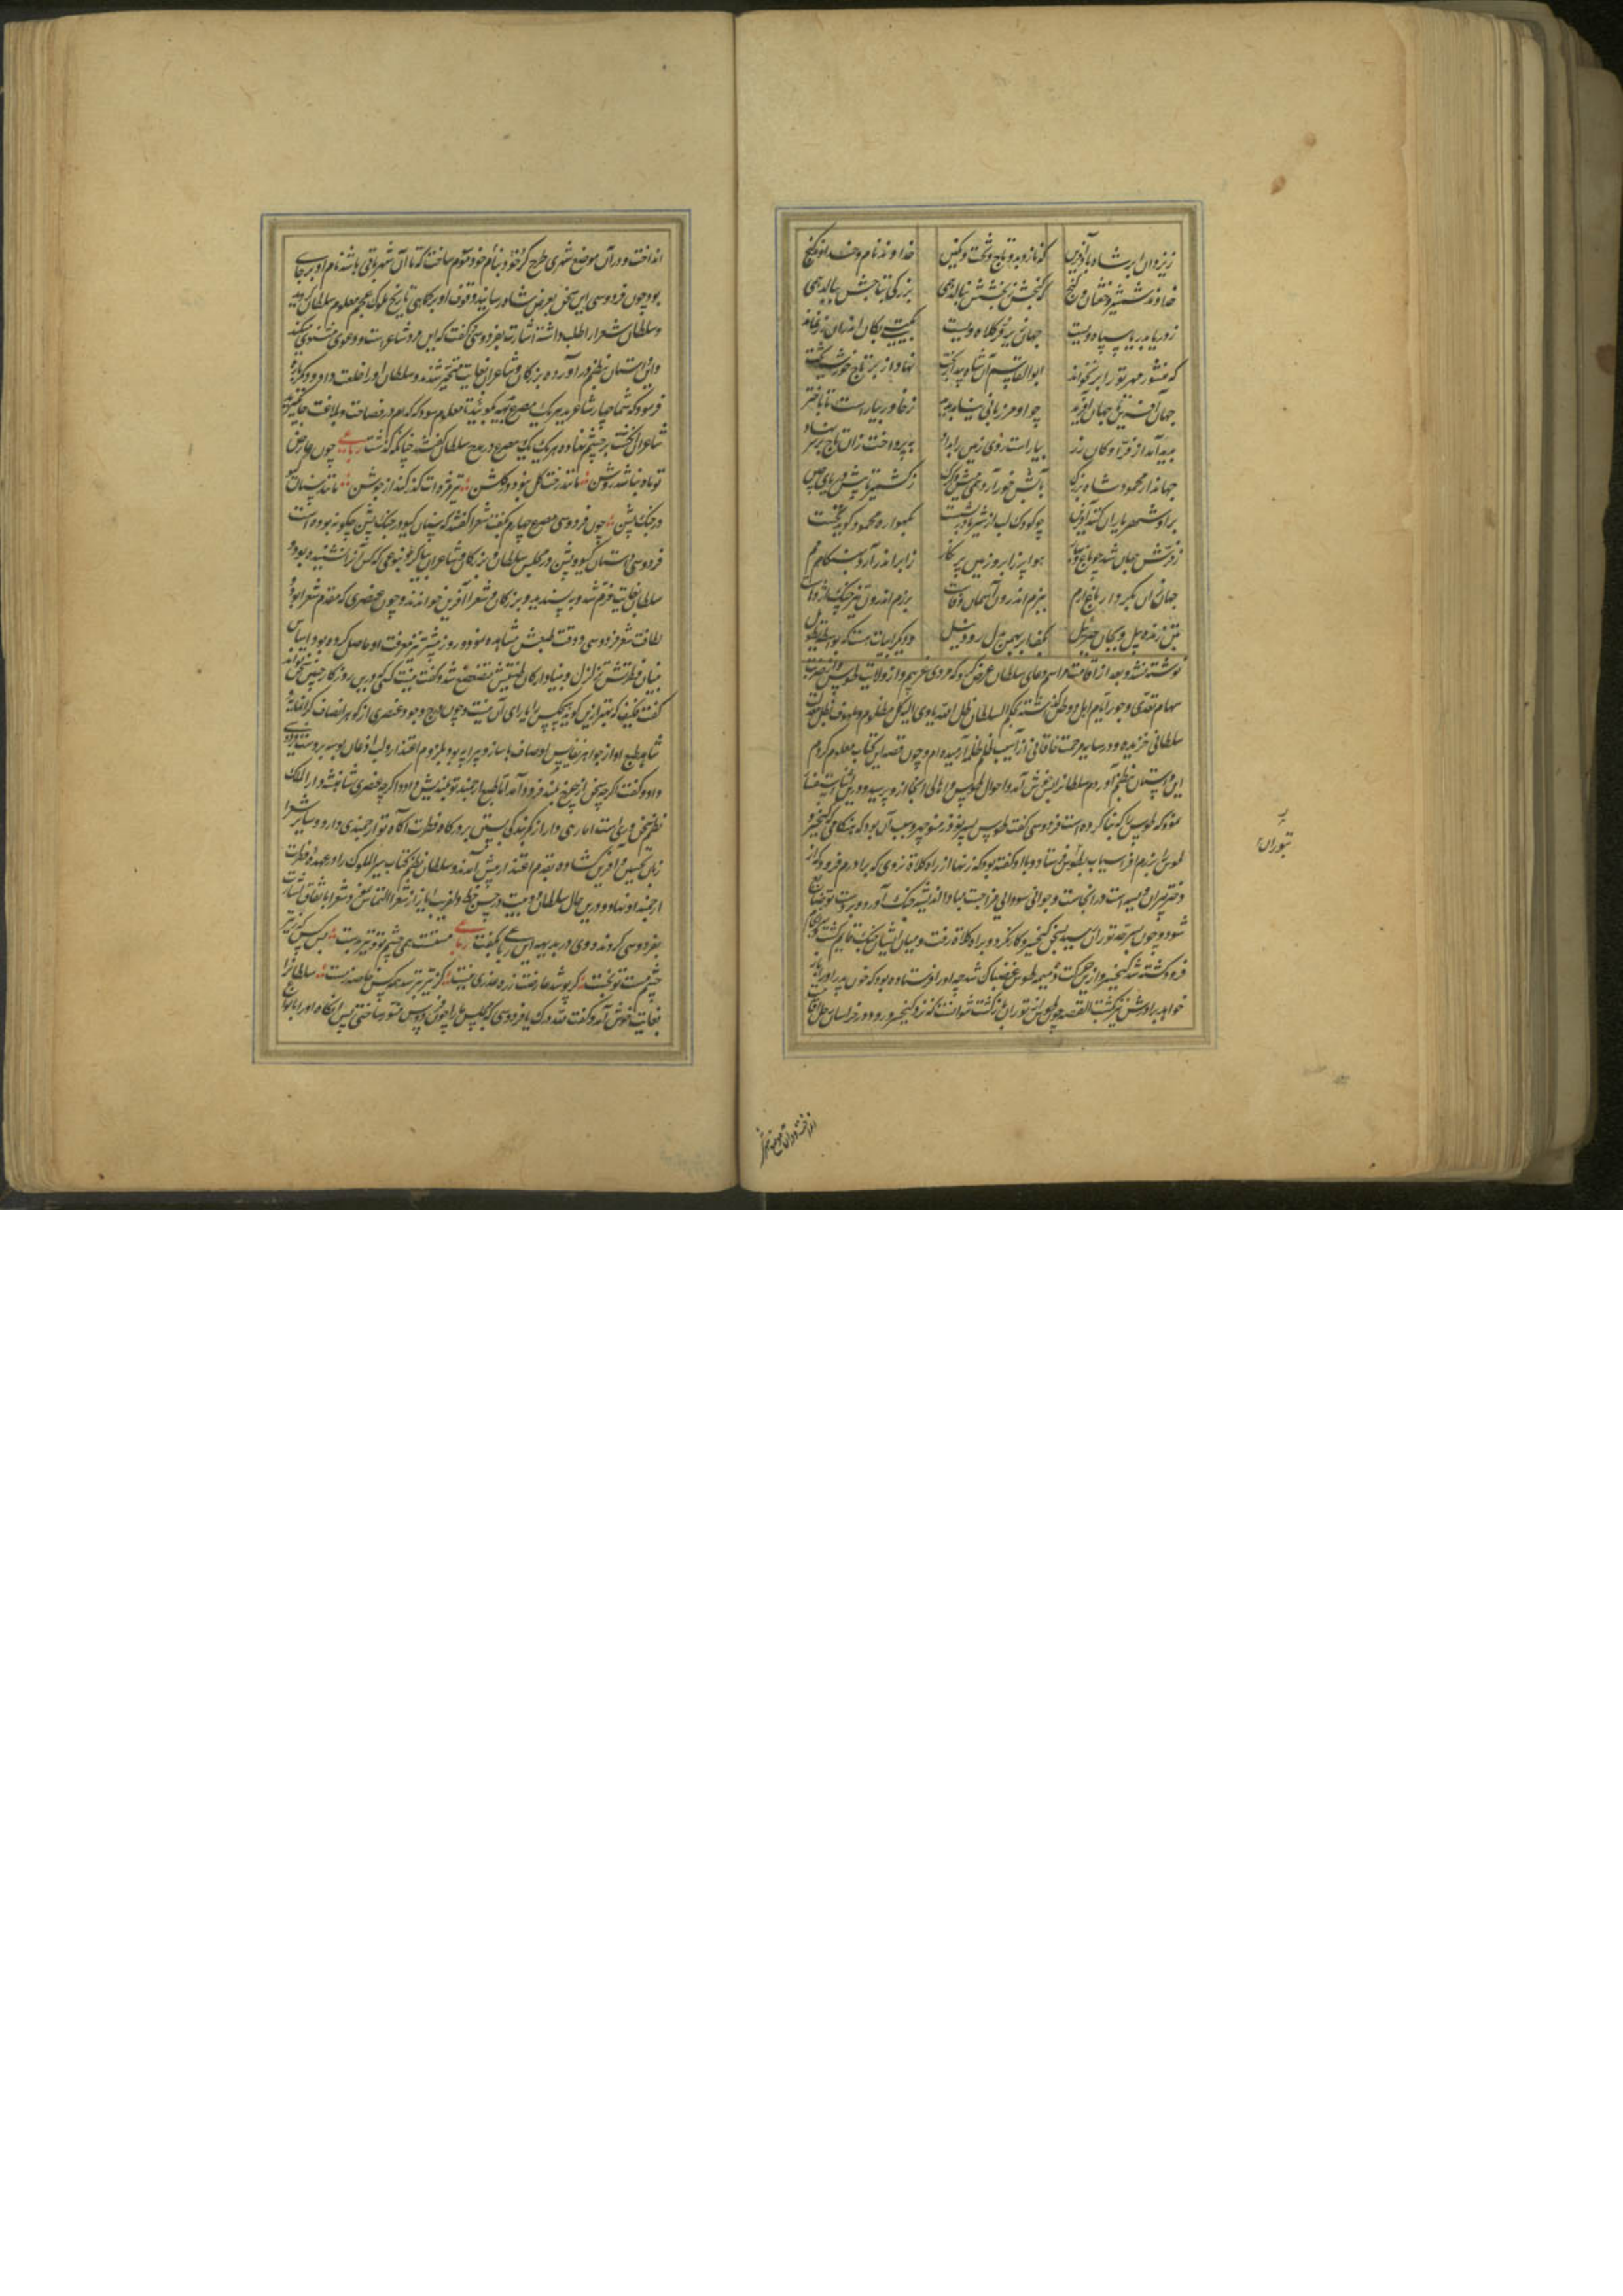 ز یزدان بر شاه باد آفرین که نازد بدو تاج و تخت و نگین خداوند نام و خداوند گنج
خداوند شمشیر و خفتان و گنج که گنجش ز بخشش بنالد همی بزرگی بتاجش ببالد همی
ز دریا بدریا سپاه ویست جهان زیر فر کلاه ویست بگیتی بکان اندرون زر نماند
که منشور مهر تو را بر نخواند ابوالقاسم آن شاه پیروزبخت نهاد از بر تاج خورشید تخت
جهان آفرین تا جهان آفرید چو او مرزبانی نیامد پدید ز خاور بیاراست تا باختر
پدید آمد از فر او کان زر بیاراست روی زمین را بداد بپرداخت زان تاج بر سر نهاد
جهاندار محمود شاه بزرگ بآبش خور آرد همی میش و گرگ ز کشمیر تا پیش دریای چین
برو شهریاران کنند آفرین چو کودک لب از شیر مادر بشست بگهواره محمود گوید نخست
ز فرش جهان شد چو باغ بهار هوا پر ز ابر و زمین پر نگار ز ابر اندر آرد بهنگام نم
جهان شد بکردار باغ ارم ببزم اندرون آسمان وفاست برزم اندرون تیز چنگ اژدهاست
بتن زنده پیل و بجان جبرئیل بکف ابر بهمن بدل رود نیل و دیگر ابیات هست که بواسطه تطویل
نوشته نشد و بعد از اقامت مراسم دعای سلطان عرض کرد که مردی غریبم و از ولایت طوس
سهام تعدی و جور ایام اهل و وطن گذاشته بحکم السلطان ظل الله یاوی الیه کل مظلوم و ملهوف
سلطانی خزیده و در سایه مرحمت خاقانی از آسیب آرمیده‌ام و چون قصه این کتاب معلوم کردم
این داستان نظم آوردم سلطانرا بغایت خوش آمد و احوال طوس و اهالی آنجا ازو پرسید و درین اثنا
نمود که طوس را که بنا کرده است فردوسی گفت طوس پسر نوذر منوچهر و سبب آن بود که هنگامی که کیخسرو
طوس را برزم افراسیاب فرستاد و با او گفته بود که زنهار از راه کلات نروی که برادرم فرود که از
دختر پیران ویسه است در آنجاست و جوانی سودائی مزاجست مبادا اندیشه جنگ آورد و بر دست تو ضایع
شود و چون بسرحد توران رسید بسخن کیخسرو کار نکرد و براه کلات رفت و میان ایشان جنگ قایم گشت
فرود کشته شد کیخسرو از بر طوس غضبناک شد چه او را فرستاده بود که خون پدر او را باز
خواهد برادرش نیز کشت القصه چون طوس از توران بازگشت نتوانست که نزد کیخسرو رود در خراسان
بتوران
انداخته و در آن موضع شهری
انداخت و در آن موضع شهری طرح کرد و بنام خود موسوم ساخت که تا آن شهر باقی باشد نام او بر جای
بود چون فردوسی این سخن بعرض شاه رسانید وقوف او بر کماهی تاریخ ملوک عجم معلوم سلطان گردید
و سلطان شعرا را طلب داشته اشارت بفردوسی گفت که این مرد شاعر است و دعوی مثنوی میکند
و این داستان بنظم در آورده بزرگان و شاعران بغایت متحیر شدند و سلطان او را خلعت داد
فرمود که شما چهار شاعرید هر یک مصرعی بدیهه بگوئید تا معلوم شود که کدام در فصاحت و بلاغت
شاعران انگشت بر چشم نهاده هر یک یک مصرع در مدح سلطان گفتند چنانکه گذشت رباعی چون عارض
تو ماه نباشد روشن مانند رخت گل نبود در گلشن تیر مژه‌ات گذر کند از جوشن مانند سنان گیو
در جنگ پشن چون فردوسی مصرع چهارم بگفت شعرا گفتند که سنان گیو در جنگ پشن چگونه بوده است
فردوسی داستان گیو و پشن در مجلس سلطان و بزرگان و شاعران بنوعی که کس آنرا نشنیده بود
سلطان بغایت خرم شد و بپسندید و بزرگان و شعرا آفرین خواندند و چون عنصری که مقدم شعرا بود
لطافت شعر فردوسی و دقت طبعش مشاهده نمود روز پیشتر نیز معرفت او حاصل کرده بود اساس
بنیان فطرتش متزلزل و بنیاد ارکان طینتش متضعضع شد و گفت نیست کسی درین روزگار چنین سخن تواند
گفت که بهتر ازین گوید هیچکس را یارای آن نیست و چون درج وجود عنصری از گوهر انصاف
شاهد طبع او از جواهر نفایس اوصاف با ساز و پیرایه بود بلزوم اعتذار و لب اذعان بوسه بر دست فردوسی
داد و گفت اگرچه سخن از چرخ بلند فرود آمد اما طبع ارجمند تو بلندیش داد و اگرچه عنصری شاه دار الملک
نظم سخن وری است اما از بندگی بستن بر درگاه فطرت آگاه تو ارجمندی دارد و سایر شعرا
زبان تحسین و آفرین گشاده بقدم اعتذار پیش آمدند و سلطان نظم کتاب سیر الملوک را در عهده فطرت
ارجمند او نهاد و درین حال سلطان دو بیت در حسن خط دلفریب ایاز از شعرا التماس نمود شعرا باتفاق اشارت
بفردوسی کردند و وی در بدیهه این رباعی بگفت رباعی مستست همی چشم تو و تیر بدست بس کس که ز تیر
چشم مست تو بخست گر پوشد عارضت زره عذری هست کز تیر بترسد همه کس خاصه ز مست سلطان را
بغایت خوش آمد و گفت لله درک یا فردوسی که مجلس ما را چون فردوس ساختی پس آنگاه او را